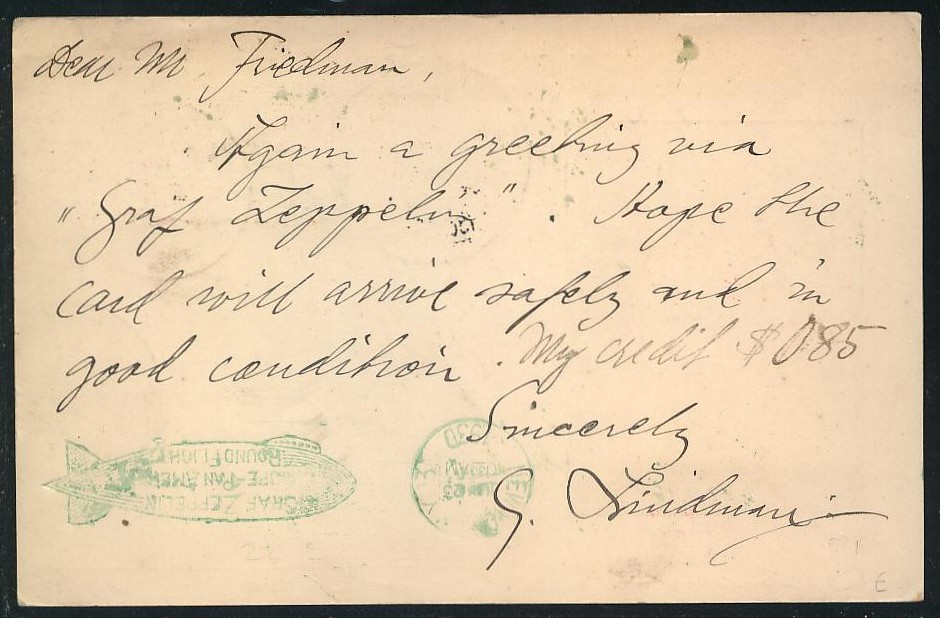 Dear Mr Friedman,
Again a greeting via
"Graf Zeppelin". Hope the
card will arrive safely and in
good condition. My credit $0.85
Sincerely
G. Lindman
GRAF ZEPPELIN
EUROPE-PAN AMERICAN
ROUND FLIGHT
1930
AM
E